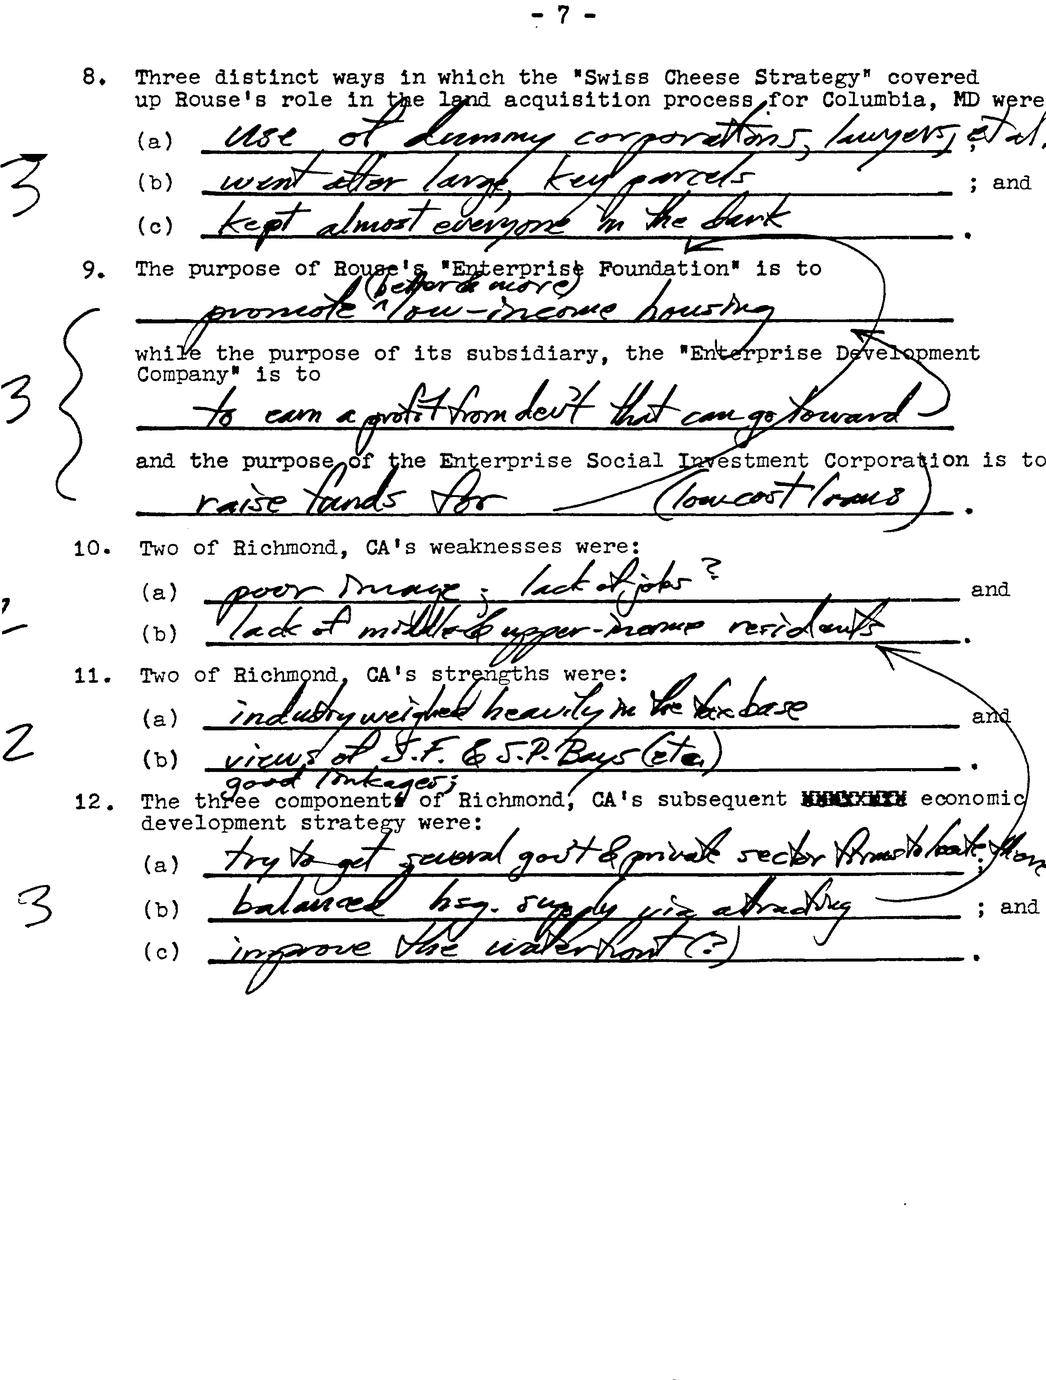 - 7 -
8. Three distinct ways in which the "Swiss Cheese Strategy" covered
up Rouse's role in the land acquisition process for Columbia, MD were
(a) use of dummy corporations, lawyers, et al. ;
3
(b) went after large, key parcels ; and
(c) kept almost everyone in the dark .
9. The purpose of Rouse's "Enterprise Foundation" is to
(better & more)
promote ^ low-income housing
while the purpose of its subsidiary, the "Enterprise Development
Company" is to
3
to earn a profit from dev't that can go toward
and the purpose of the Enterprise Social Investment Corporation is to
raise funds for (low cost loans) .
10. Two of Richmond, CA's weaknesses were:
(a) poor image; lack of jobs? and
(b) lack of middle & upper-income residents .
11. Two of Richmond, CA's strengths were:
(a) industry weighed heavily in the tax base and
2
(b) views of S.F. & S.P. Bays (etc.) .
good linkages;
12. The three components of Richmond, CA's subsequent economic
development strategy were:
(a) try to get several gov't & private sector firms to locate there ;
3
(b) balanced hsg. supply via attracting ; and
(c) improve the waterfront (?) .